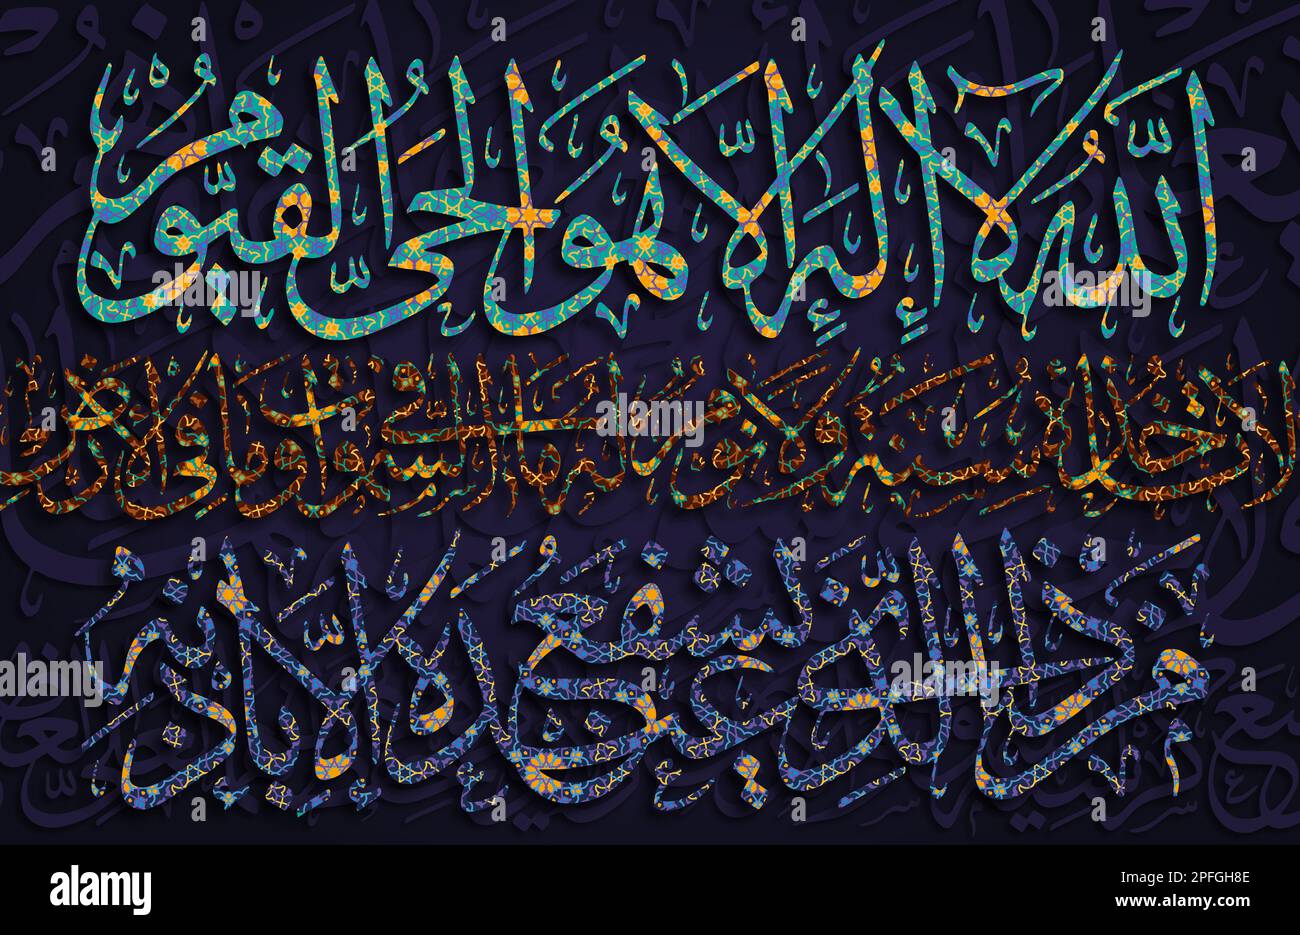 اللَّهُ لَآ إِلَٰهَ إِلَّا هُوَ الْحَيُّ الْقَيُّومُ
لَا تَأْخُذُهُ سِنَةٌ وَلَا نَوْمٌ لَهُ مَا فِي السَّمَاوَاتِ وَمَا فِي الْأَرْضِ
مَنْ ذَا الَّذِي يَشْفَعُ عِنْدَهُ إِلَّا بِإِذْنِهِ
alamy
alamy
Image ID: 2PFGH8E
www.alamy.com